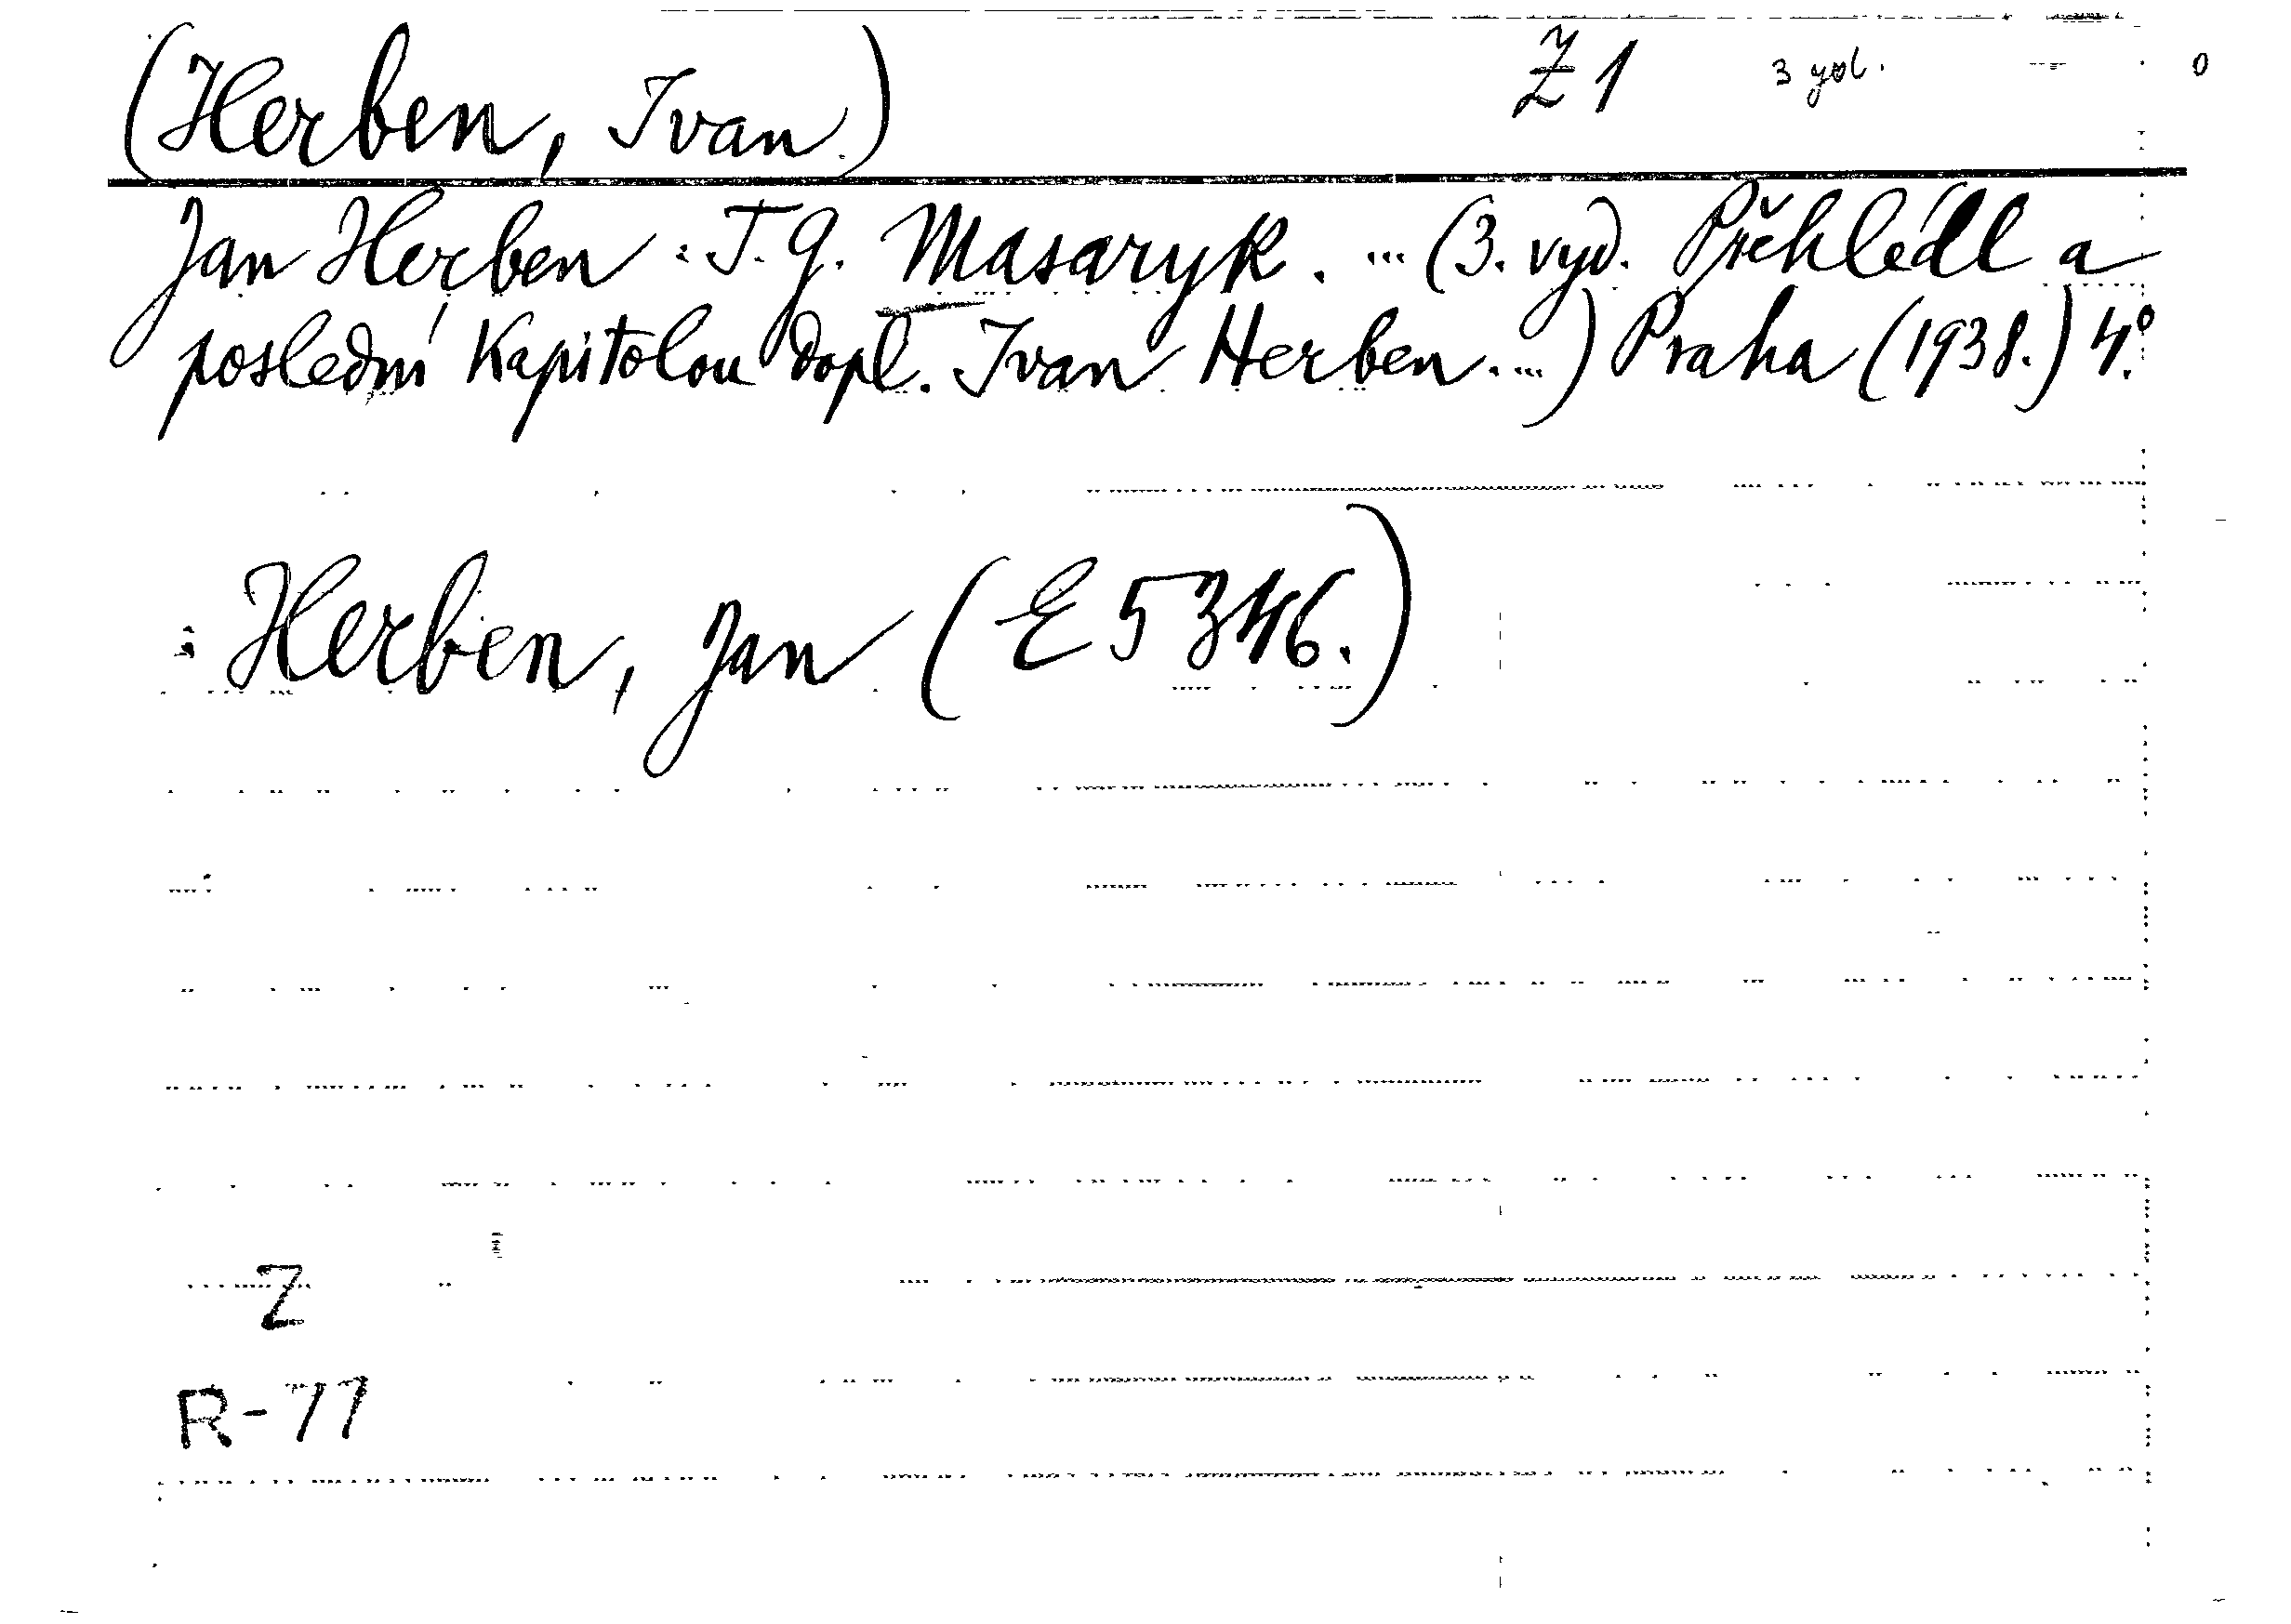 (Herben, Ivan.) Ž 1
Jan Herben: T. G. Masaryk. ... (3. vyd. Přehlédl a
poslední kapitolou dopl. Ivan Herben. ...) Praha (1938.) 4°.
: Herben, Jan (E 5346.)
Z
R-77